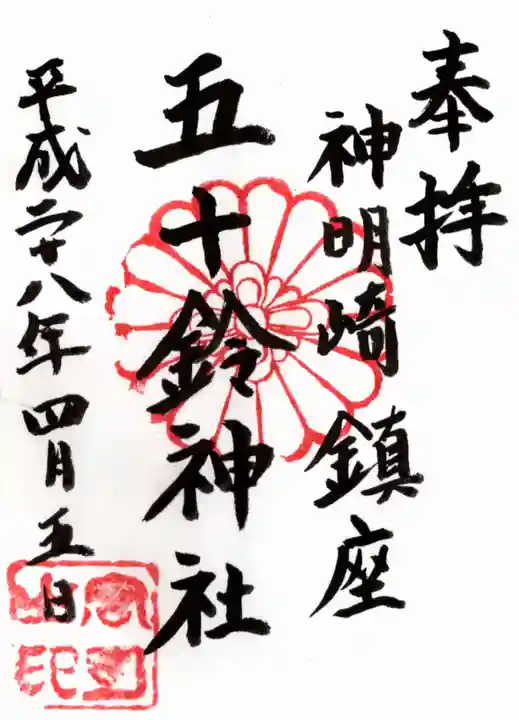 奉拝
神明崎鎮座
五十鈴神社
平成二十八年四月五日